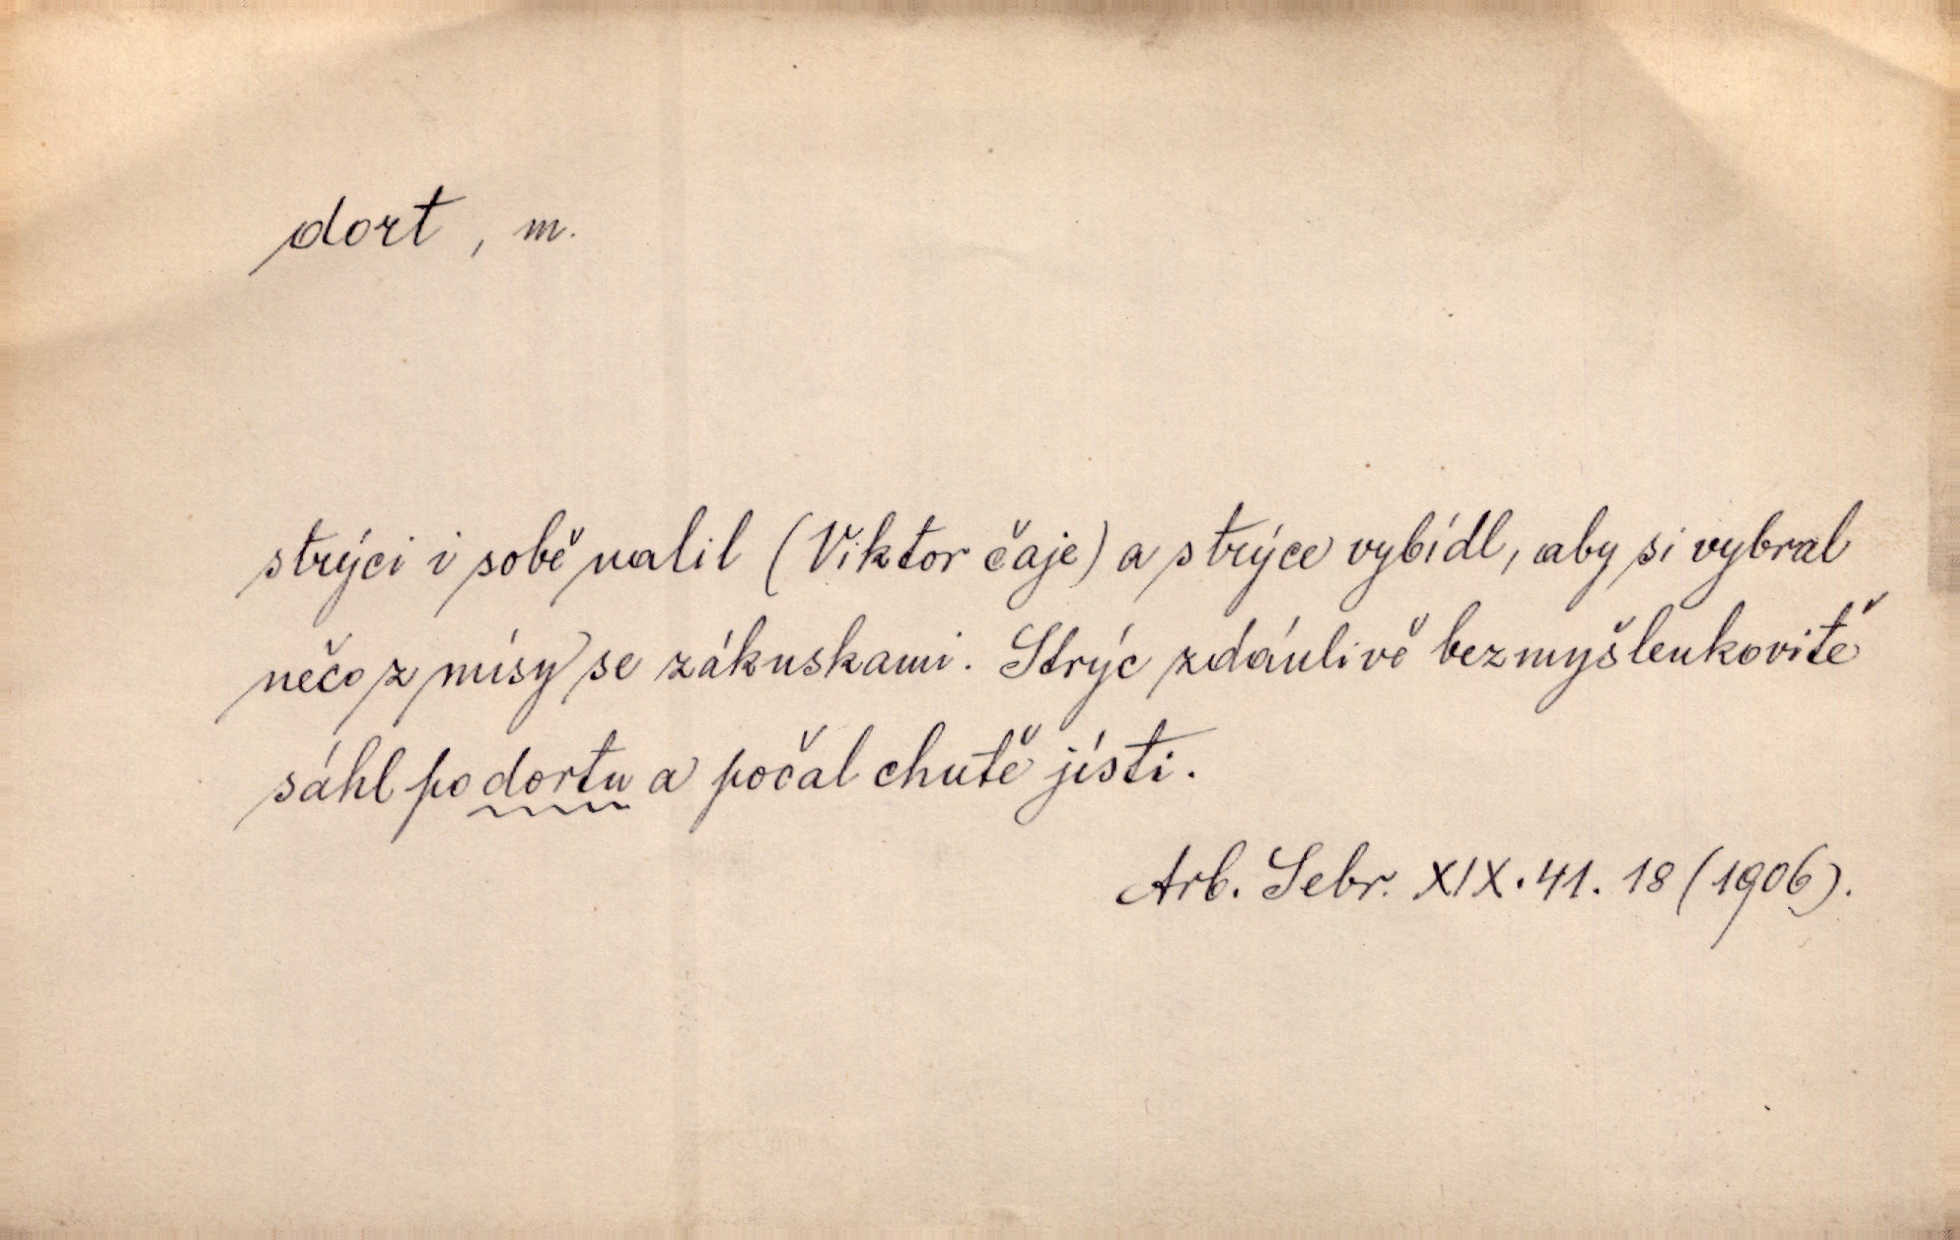 dort, m.
strýci i sobě nalil (Viktor čaje) a strýce vybídl, aby si vybral
něčo z mísy se zákuskami. Strýc zdánlivě bezmyšlenkovitě
sáhl po dortu a počal chutě jísti.
Arb. Sebr. XIX. 41. 18 (1906).